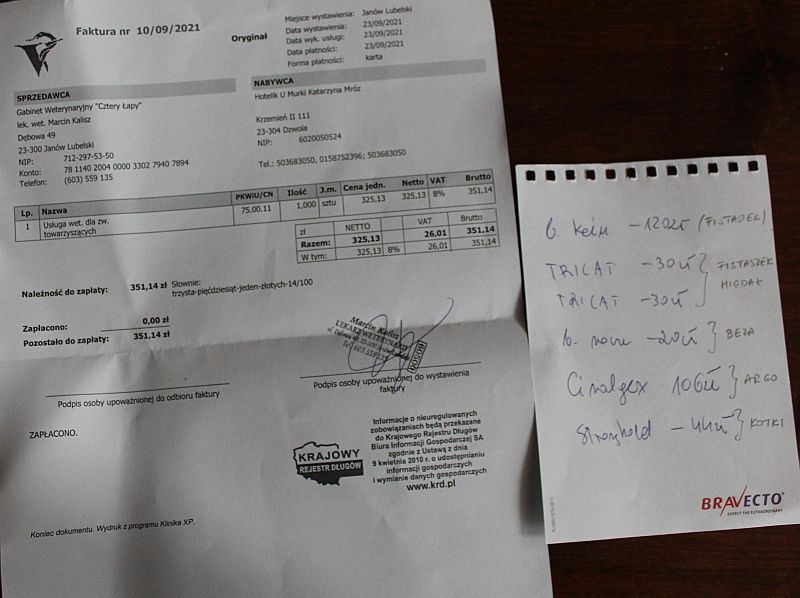 Faktura nr 10/09/2021
Oryginał
Miejsce wystawienia: Janów Lubelski
Data wystawienia: 23/09/2021
Data wyk. usługi: 23/09/2021
Data płatności: 23/09/2021
Forma płatności: karta
SPRZEDAWCA
Gabinet Weterynaryjny "Cztery Łapy"
lek. wet. Marcin Kalisz
Dębowa 49
23-300 Janów Lubelski
NIP: 712-297-53-50
Konto: 78 1140 2004 0000 3302 7940 7894
Telefon: (603) 559 135
NABYWCA
Hotelik U Murki Katarzyna Mróz
Krzemień II 111
23-304 Dzwola
NIP: 6020050524
Tel.: 503683050, 0158752396; 503683050
Lp. Nazwa PKWiU/CN Ilość J.m. Cena jedn. Netto VAT Brutto
1 Usługa wet. dla zw. towarzyszących 75.00.11 1,000 sztu 325,13 325,13 8% 351,14
zł NETTO VAT Brutto
Razem: 325,13 26,01 351,14
W tym: 325,13 8% 26,01 351,14
Należność do zapłaty: 351,14 zł Słownie:
trzysta-pięćdziesiąt-jeden-złotych-14/100
Zapłacono: 0,00 zł
Pozostało do zapłaty: 351,14 zł
Marcin Kalisz
LEKARZ WETERYNARII
Podpis osoby upoważnionej do odbioru faktury
Podpis osoby upoważnionej do wystawienia
faktury
ZAPŁACONO.
KRAJOWY
REJESTR DŁUGÓW
Informacje o nieuregulowanych
zobowiązaniach będą przekazane
do Krajowego Rejestru Długów
Biura Informacji Gospodarczej SA
zgodnie z Ustawą z dnia
9 kwietnia 2010 r. o udostępnianiu
informacji gospodarczych
i wymianie danych gospodarczych
www.krd.pl
Koniec dokumentu. Wydruk z programu Klinika XP.
- 120zł (FISTASZEK)
TRICAT - 30zł } FISTASZEK
TRICAT - 30zł } MIGDAŁ
- 20zł } BEZA
Cimalgex 106zł } ARGO
Stronghold - 44zł } KOTKI
BRAVECTO
EXPECT THE EXTRAORDINARY